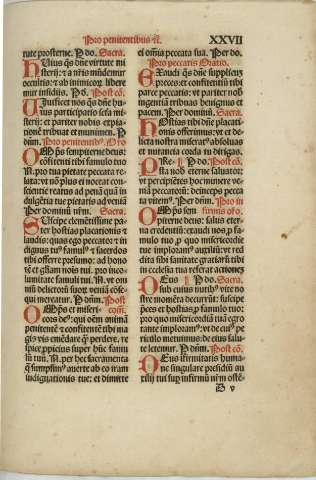 Pro penitentibus ⁊c. XXVII
tute prosterne. P dō. Sacra.
Huius qs dñe virtute mi
sterij: ⁊ a nr̄is mūdemur
occultis: ⁊ ab inimicoꝝ libere
mur insidijs. P dō. Post cō.
Uiuificet nos qs dñe hu
ius participatio sctā mi
sterij: et pariter nobis expia
tionē tribuat et munimen. P
dñm.
Omps sempiterne deus:
cōfitenti tibi famulo tuo
N. pro tua pietate peccata re
laxa: vt nō plus ei noceat con
scientie reatus ad penā quā in
dulgētia tue pietatis ad veniā
Per dominū nr̄m. Sacra.
Suscipe clementissime pa
ter hostias placationis ⁊
laudis: quas ego peccator ⁊ in
dignus tu⁹ famul⁹ ⁊ sacerdos
tibi offerre presumo: ad hono
rē et gl̄iam nois tui. pro inco
lumitate famuli tui N. vt om
niū delictoꝝ suoꝝ veniā cōse
qui mereatur. P dñm. Post
Omps et miseri com̄.
cors de⁹: qui oēm animā
penitentē ⁊ confitentē tibi ma
gis vis emēdare qȝ perdere. re
spice ppicius super hūc famu
lū tuū N. per hec sacramenta
q̄ sumpsim⁹ auerte ab eo iram
indignationis tue: et dimitte
ei omīa peccata sua. Per dō.
Pro peccatis Oratio.
Exaudi qs dñe supplicuȝ
preces: et confitentiū tibi
parce peccatis: vt pariter nob
ingentiā tribuas benignus et
pacem. Per dominū. Sacra.
Hostias tibi dñe placati
onis offerimus: vt et de
licta nostra miserat⁹ absoluas
et nutancia corda tu dirigas.
PRe- P dō. Post cō.
sta nob eterne saluator:
vt percipiētes hoc munere ve
niam peccatoꝝ: deinceps pecca
ta vitem⁹. P dñm. Pro in
Omps sem firmis oro.
piterne deus: salus eter
na credentiū: exaudi nos ꝓ fa
mulo tuo ꝓ quo misericordie
tue imploram⁹ auxiliū: vt red
dita sibi sanitate gratiaȝ tibi
in ecclesia tua referat actiones
DEus P dō. Sacra.
sub cuius nutib⁹ vite no
stre momēta decurrūt: suscipe
preces et hostias ꝓ famulo tuo:
pro quo misericordiā tuā egro
tante imploram⁹: vt de cui⁹ pe
riculo metuimus: de eius salu
te letemur. P dñm. Post cō.
DEus infirmitatis huma
ne singulare presidiū au
xilij tui sup infirmū nr̄m ostē-
D v